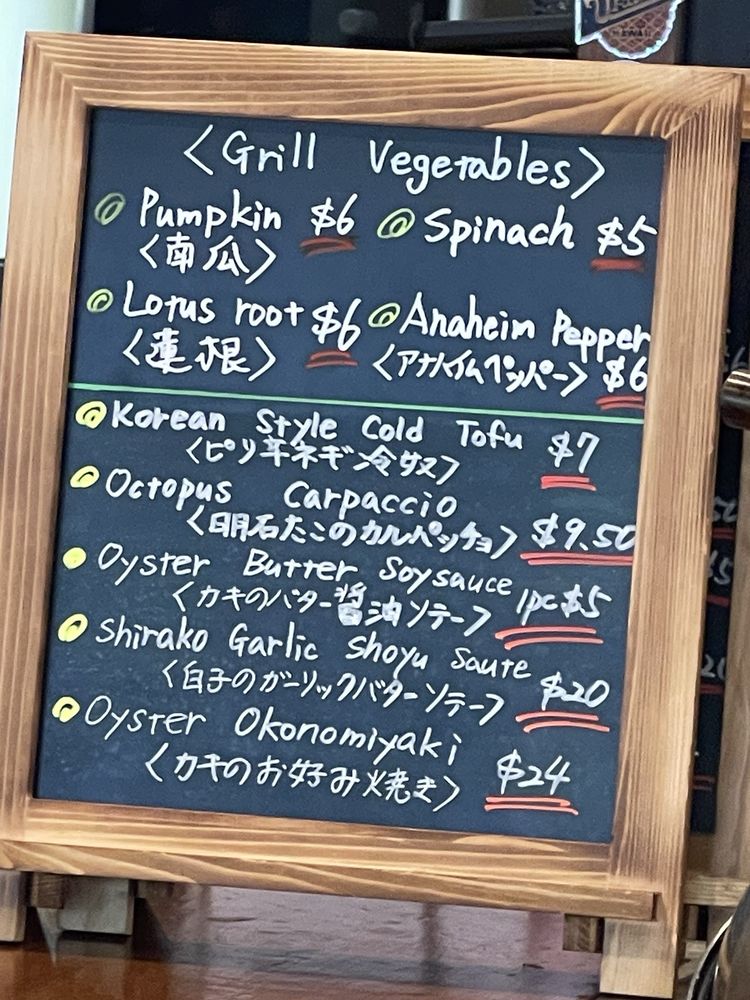 <Grill Vegetables>
Pumpkin $6
<南瓜>
Spinach $5
Lotus root $6
<蓮根>
Anaheim Pepper
<アナハイムペッパー> $6
Korean Style Cold Tofu $7
<ピリ辛ネギ冷奴>
Octopus Carpaccio
<明石たこのカルパッチョ> $9.50
Oyster Butter Soysauce 1pc $5
<カキのバター醤油ソテー>
Shirako Garlic Shoyu Saute
<白子のガーリックバターソテー> $20
Oyster Okonomiyaki
<カキのお好み焼き> $24
HAWAII